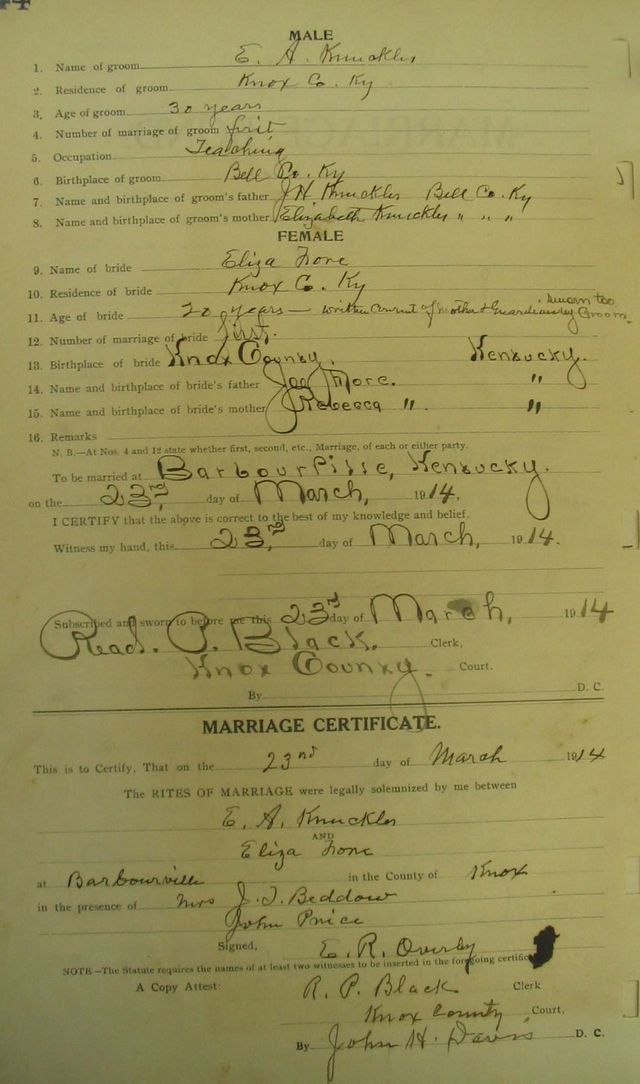 44
MALE
1. Name of groom E. A. Knuckles
2. Residence of groom Knox Co. Ky
3. Age of groom 30 years
4. Number of marriage of groom first
5. Occupation Teaching
6. Birthplace of groom Bell Co. Ky
7. Name and birthplace of groom's father J H Knuckles Bell Co. Ky
8. Name and birthplace of groom's mother Elizabeth Knuckles " " "
FEMALE
9. Name of bride Eliza
10. Residence of bride Knox Co. Ky
11. Age of bride 20 years — written consent of mother & Guardian sworn too by Groom
12. Number of marriage of bride first.
13. Birthplace of bride Knox County. Kentucky.
14. Name and birthplace of bride's father Joe "
15. Name and birthplace of bride's mother Rebecca ". "
16. Remarks
N. B.—At Nos. 4 and 12 state whether first, second, etc., Marriage, of each or either party.
To be married at Barbourville, Kentucky.
on the 23rd, day of March, 1914.
I CERTIFY that the above is correct to the best of my knowledge and belief.
Witness my hand, this 23rd, day of March, 1914.
Subscribed and sworn to before me this 23rd day of March, 1914
Read. P. Black. Clerk,
Knox County. Court.
By D. C.
MARRIAGE CERTIFICATE.
This is to Certify, That on the 23rd day of March 1914
The RITES OF MARRIAGE were legally solemnized by me between
E. A. Knuckles
AND
Eliza
at Barbourville in the County of Knox
in the presence of Mrs J. T. Beddow
John Price
Signed, E. R. Overby
NOTE—The Statute requires the names of at least two witnesses to be inserted in the foregoing
A Copy Attest: R. P. Black Clerk
Knox County Court,
By John H. Davis D. C.